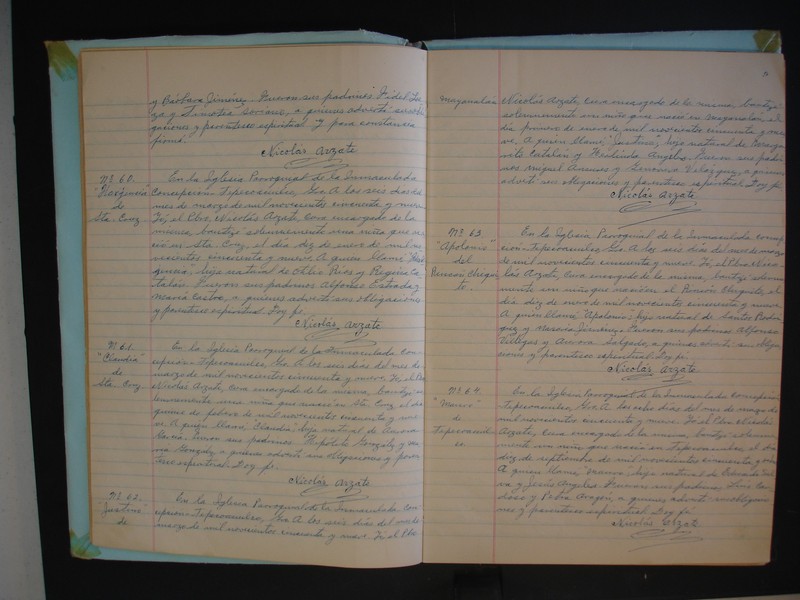 y Bárbara Jiménez. Fueron sus padrinos Fidel
y Timotea Serrano, a quienes advertí sus obli-
gaciones y parentesco espiritual. Y para constancia
firmé.
Nicolás Arzate
Nº 60.
de
Sta. Cruz.
En la Iglesia Parroquial de la Inmaculada
Concepción Tepecoacuilco, Gro. A los seis días del
mes de marzo de mil novecientos cincuenta y nueve.
Yo, el Pbro. Nicolás Arzate, Cura encargado de la
misma, bauticé solemnemente una niña que na-
ció en Sta. Cruz, el día diez de enero de mil no-
vecientos cincuenta y nueve. A quien llamé
hija natural de Otilio Ríos y Regina Ca-
talán. Fueron sus padrinos Alfonso Estrada y
María Castro, a quienes advertí sus obligaciones
y parentesco espiritual. Doy fe.
Nicolás Arzate
Nº 61.
"Claudia"
de
Sta. Cruz.
En la Iglesia Parroquial de la Inmaculada Con-
cepción Tepecoacuilco, Gro. A los seis días del mes de
marzo de mil novecientos cincuenta y nueve. Yo, el Pbro.
Nicolás Arzate, Cura encargado de la misma, bauticé so-
lemnemente una niña que nació en Sta. Cruz el día
quince de febrero de mil novecientos cincuenta y nue-
ve. A quien llamé "Claudia" hija natural de Aurora
García. Fueron sus padrinos Hipólito González y Ma-
ría González a quienes advertí sus obligaciones y paren-
tesco espiritual. Doy fe.
Nicolás Arzate
Nº 62.
"Justino"
de
En la Iglesia Parroquial de la Inmaculada Con-
cepción Tepecoacuilco, Gro. A los seis días del mes de
marzo de mil novecientos cincuenta y nueve. Yo, el Pbro.
Mayanalán
Nicolás Arzate, Cura encargado de la misma, bauticé
solemnemente un niño que nació en Mayanalán, el
día primero de enero de mil novecientos cincuenta y nue-
ve. A quien llamé "Justino", hijo natural de
Catalán y Angelos. Fueron sus padri-
nos Miguel y Genoveva Velázquez, a quienes
advertí sus obligaciones y parentesco espiritual. Doy fe.
Nicolás Arzate
Nº 63
"Apolonio"
del
En la Iglesia Parroquial de la Inmaculada Concep-
ción Tepecoacuilco, Gro. A los seis días del mes de marzo
de mil novecientos cincuenta y nueve. Yo, el Pbro. Nico-
lás Arzate, Cura encargado de la misma, bauticé solemne-
mente un niño que nació en el Rincón, el
día diez de enero de mil novecientos cincuenta y nueve.
A quien llamé "Apolonio", hijo natural de Santos Rodrí-
guez y Jiménez. Fueron sus padrinos Alfonso
Villegas y Aurora Salgado, a quienes advertí sus obliga-
ciones y parentesco espiritual. Doy fe.
Nicolás Arzate
Nº 64.
de
Tepecoacuil-
co.
En la Iglesia Parroquial de la Inmaculada Concepción
Tepecoacuilco, Gro. A los ocho días del mes de marzo de
mil novecientos cincuenta y nueve. Yo el Pbro. Nicolás
Arzate, Cura encargado de la misma, bauticé solemne-
mente un niño que nació en Tepecoacuilco, el día
diez de septiembre de mil novecientos cincuenta y
A quien llamé hijo natural de
y Jesús Angeles. Fueron sus padrinos, Luis Ca-
y Petra Aragón, a quienes advertí sus obligacio-
nes y parentesco espiritual. Doy fe.
Nicolás Arzate